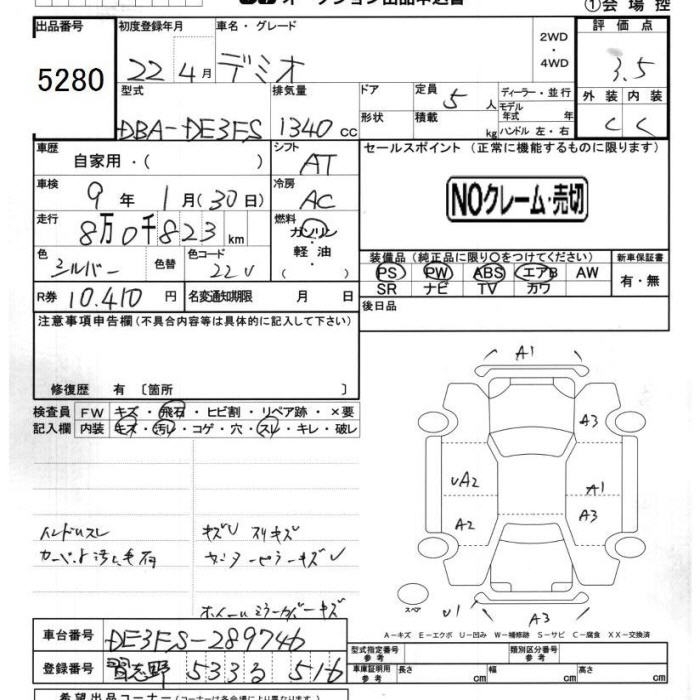 ①会場控
出品番号 初度登録年月 車名・グレード 2WD・4WD 評価点
5280 22年4月 デミオ 3.5
型式 排気量 ドア 定員 5人 ディーラー・並行 外装 内装
DBA-DE3FS 1340cc 形状 積載 kg モデル年式 年 ハンドル 左・右 C C
車歴 自家用・( ) シフト AT セールスポイント (正常に機能するものに限ります)
車検 9年 1月(30日) 冷房 AC NOクレーム・売切
走行 8万0千823km 燃料 ガソリン・軽油・( )
色 シルバー 色替 色コード 22V 装備品 (純正品に限り○をつけてください) 新車保証書
PS PW ABS エアB AW 有・無
SR ナビ TV カワ
R券 10.410円 名変通知期限 月 日 後日品
注意事項申告欄(不具合内容等は具体的に記入して下さい)
修復歴 有 〔箇所 〕
検査員 FW キズ・飛石・ヒビ割・リペア跡・×要
記入欄 内装 キズ・汚レ・コゲ・穴・スレ・キレ・破レ
A1
A3
UA2 A1
A2 A3
スペア U1 A3
キズU スリキズ
A-キズ E-エクボ U-凹み W-補修跡 S-サビ C-腐食 XX-交換済
車台番号 DE3FS-289746 型式指定番号 参考 類別区分番号 参考
登録番号 習志野 533 る 516 車庫証明用 参考 長さ cm 幅 cm 高さ cm
希望出品コーナー (コーナーは各会場により異なります。)